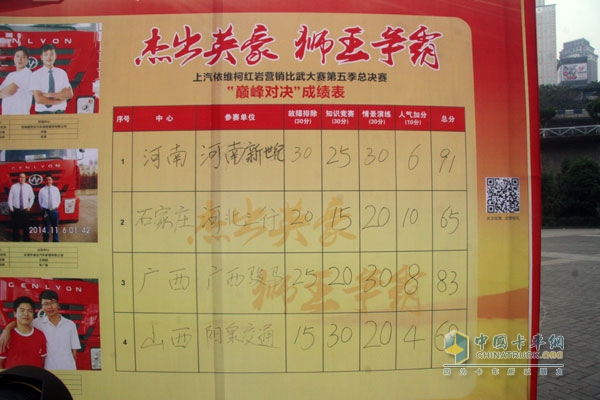 杰出英豪 狮王争霸
上汽依维柯红岩营销比武大赛第五季总决赛
“巅峰对决”成绩表
序号 中心 参赛单位 故障排除(30分) 知识竞赛(30分) 情景演练(30分) 人气加分(10分) 总分
1 河南 河南新世纪 30 25 30 6 91
2 石家庄 河北三行 20 15 20 10 65
3 广西 广西骏马 25 20 30 8 83
4 山西 阳泉交通 15 30 20 4
杰出英豪
狮王争霸
GENLVON
GENLVON
2014.11.6 01:42
GENLVON
中国卡车网
CHINATRUCK.CC